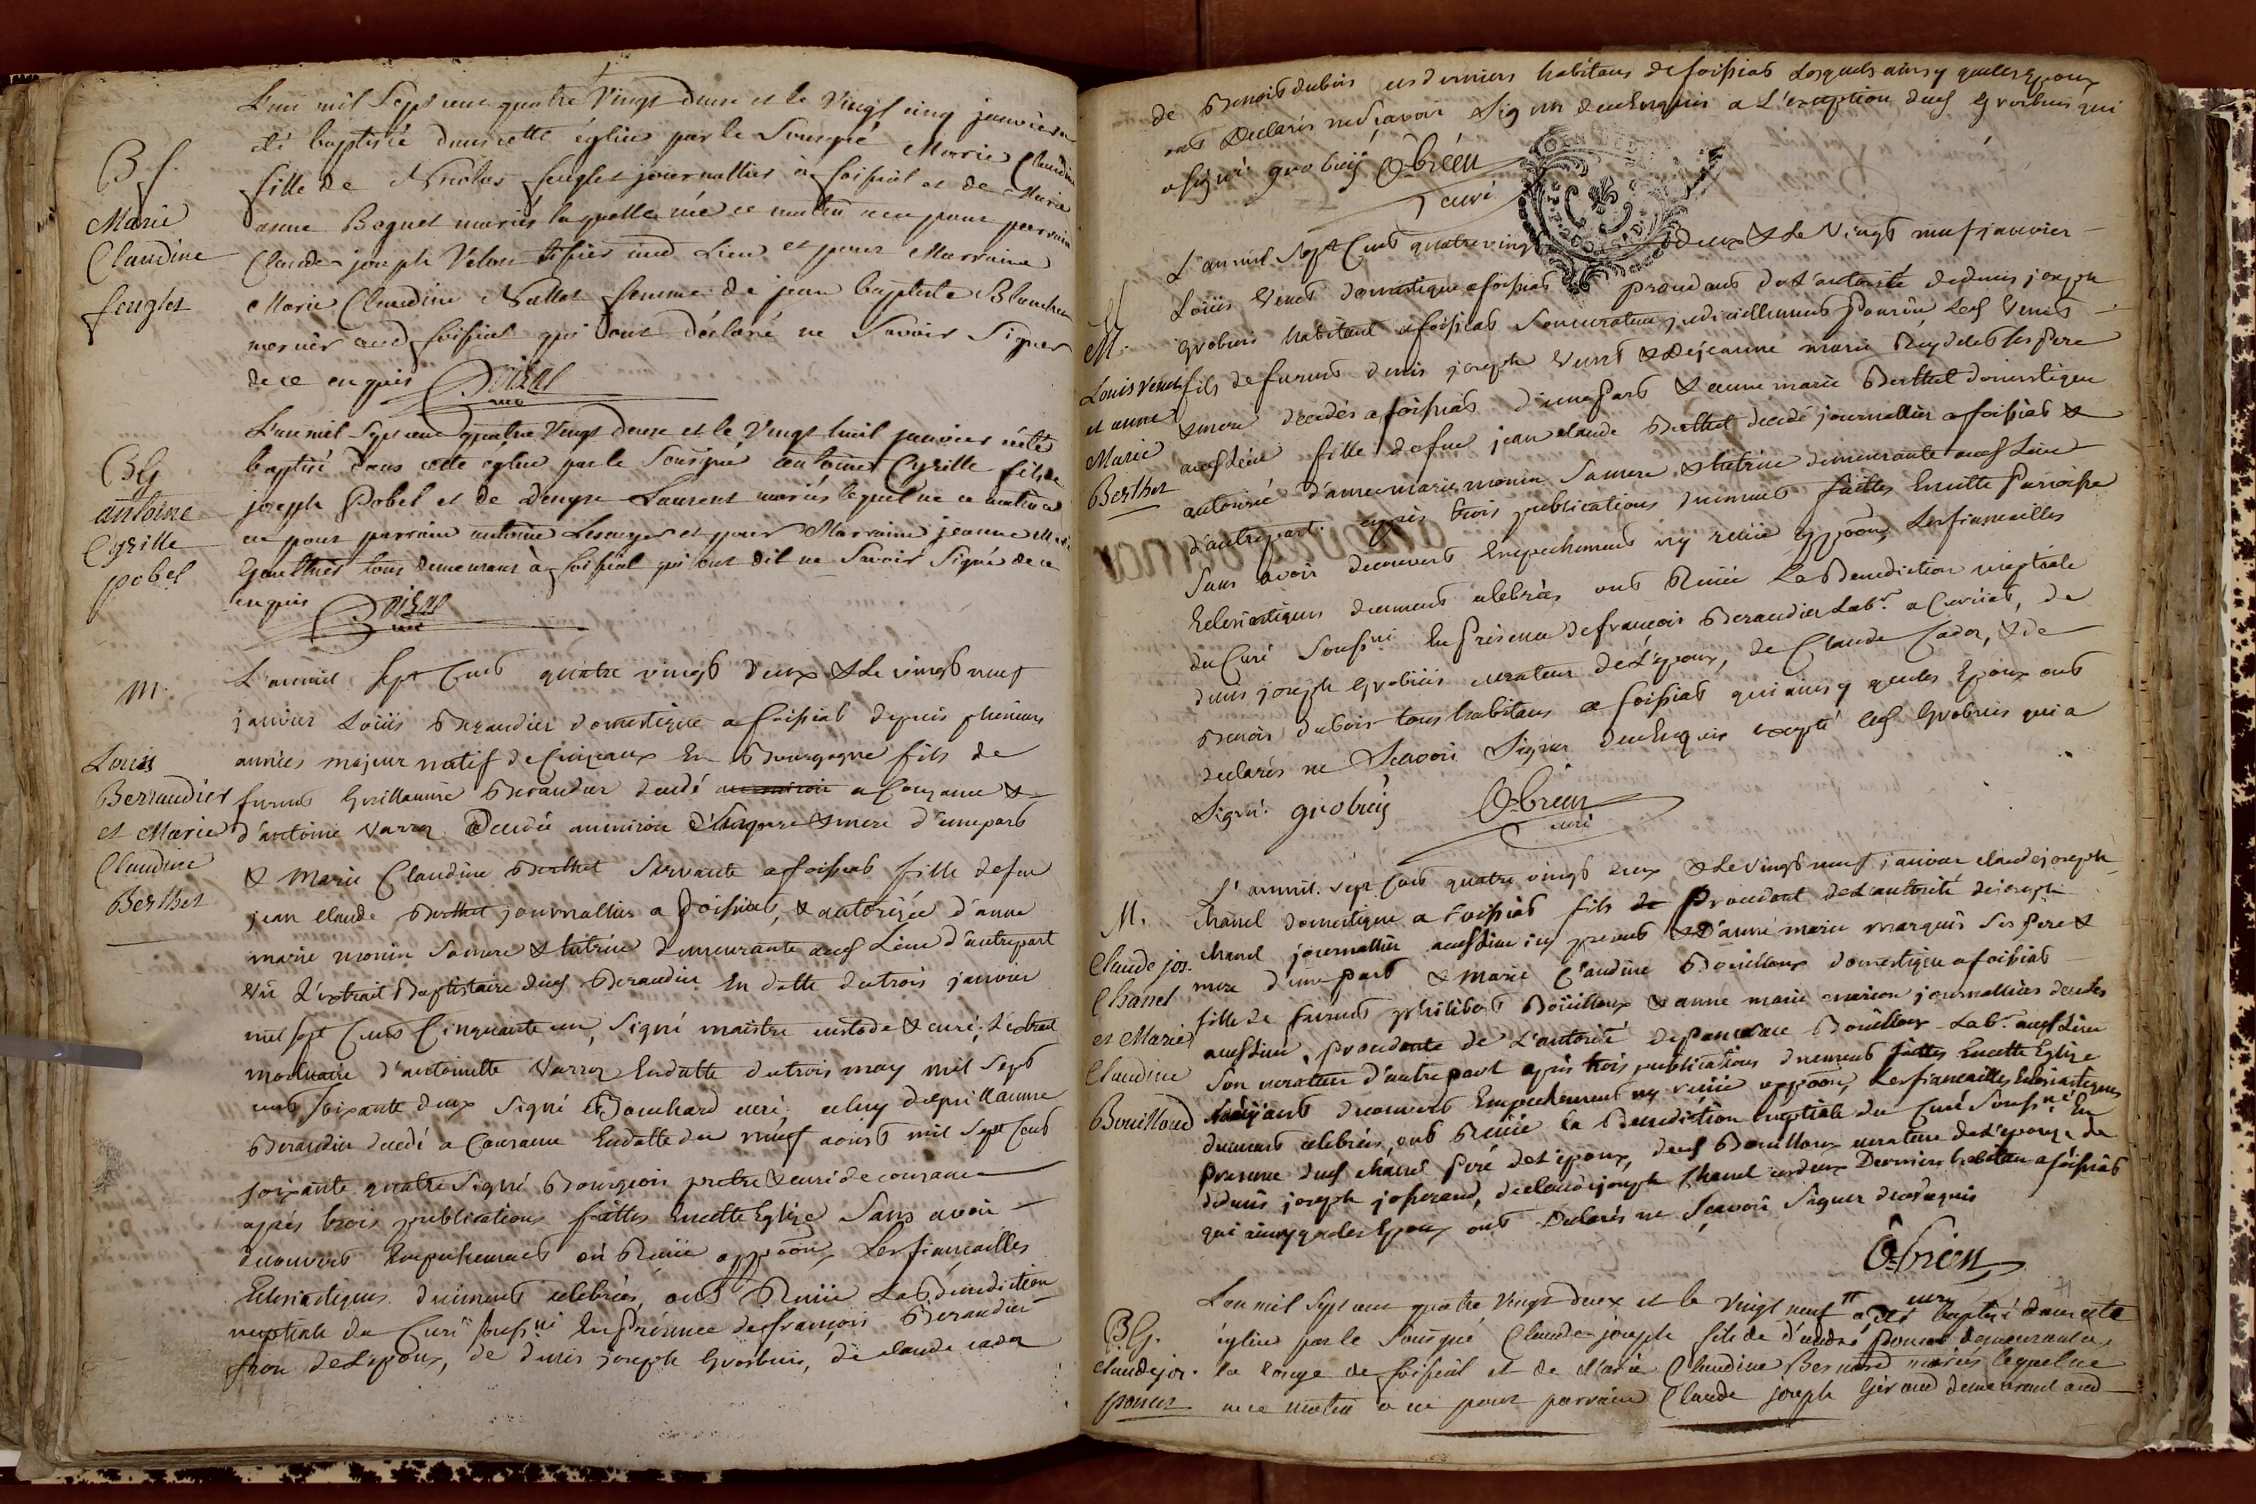 L'an mil Sept cent quatre Vingt deux et le Vingt cinq janvier a
été baptisée dans cette église par le Sousigné Marie Claudine
B f.
Marie
Claudine
feuglet
fille de Nicolas feuglet journallier à foissiat et de Marie
anne Boguet mariés laquelle née ce matin a eu pour parrain
Claude joseph Velon tissier aud Lieu et pour Marraine
Marie Claudine Nallet femme de jean baptiste Blanchon
mercier aud foissiat qui ont déclaré ne Savoir Signer
de ce enquis
curé
L'an mil Sept cent quatre Vingt deux et le Vingt huit janvier a été
BG
antoine
Cyrille
pobel
baptisé dans cette église par le Sousigné antoine Cyrille fils de
joseph Pobel et de Denyse Laurent mariés lequel né ce matin a
eu pour parrain antoine et pour Marraine jeanne Marie
Gauthier tous demeurant à foissiat qui ont dit ne Savoir Signé de ce
enquis
curé
M.
Louis
Berraudier
et Marie
Claudine
Berthet
L'an mil Sept Cent quatre vingt deux & Le vingt neuf
janvier Loüis Beraudier domestique a foissiat depuis plusieurs
années majeur natif de Cuizeaux En Bourgogne fils de
furent Guillaume Beraudier decedé a Couzance &
d'antoine Varroz Decedée au miroir & mere d'une part
& Marie Claudine Berthet Servante a foissiat fille de feu
jean Claude Berthet journallier a foissiat, & autorizée d'anne
marie monin Sa mere & tutrice demeurante aud Lieu d'autre part
Vu L'extrait Baptistaire dud Beraudier En datte du trois janvier
mil sept Cent Cinquante un, Signé maistre custode & curé; L'extrait
mortuaire d'antoinette Varroz En datte du trois may mil Sept
cent soixante deux Signé Bouchard curé. celuy de guillaume
Beraudier decedé a Couzance En datte du neuf aoust mil Sept Cent
soixante quatre Signé Bourgeois pretre & curé de couzance
après trois publications faittes En cette Eglize Sans avoir
decouvert Empechement ni Reciie oppoõn, Les fiançailles
Eclesiastiques duement celebrées, ont Reciie La Bénédiction
nuptiale du Curé souss.né En Présence de françois Beraudier
frere de L'epoux, de denis joseph Grosbuis, de claude cador
de Benoit dubois ces derniers habitans de foissiat Lesquels ainsy que les Epoux
ont Declarés ne Sçavoir Signer deu Enquis a L'exception dud Grosbuis qui
a Signé. grobuis Obrien
curé
M.
Louis Venet
et anne
Marie
Berthet
L'an mil Sept Cent quatre vingt deux & Le Vingt neuf janvier
Loüis Venet domestique a foissiat procedant de L'autorité de denis joseph
grobuis habitant a foissiat Son curateur judiciellement Pourvu Led Venet
fils de furent denis joseph Venet & De jeanne marie Reydelet ses Pere
& mere decedés a foissiat d'une Part & anne marie Berthet domestique
aud Lieu fille de feu jean claude Berthet decedé journallier a foissiat &
autorizée d'anne marie monin Sa mere & tutrice demeurante aud Lieu
d'autre part. après trois publications duement faittes En cette Paroisse
Sans avoir decouvert Empechement ny reciie oppoõn, Les fiancailles
Eclesiastiques duement celebrées ont Reciie La Benediction nuptiale
du Curé Souss.né En Présence de françois Beraudier Lab.r a Curciat, de
denis joseph Grobuis curateur de L'epoux, de Claude Cador, & de
Benoit dubois tous habitans a foissiat qui ainsy que les Epoux ont
declarés ne Sçavoir Signer deu Enquis excepté led Grobuis qui a
Signé. grobuis Obrien
curé
M.
Claude jos.
Chanel
et Marie
Claudine
Bouilloud
L'an mil. sept Cent quatre vingt deux & Le vingt neuf janvier claude joseph
chanel domestique a foissiat fils de Procedant de L'autorité de joseph
chanel journallier aud Lieu icy present & D'anne marie marquis Ses Pere &
mere d'une part & Marie Claudine Boüilloux domestique a foissiat
fille de furent philibert Boüilloux & anne marie journalliers decedés
aud Lieu, procedante de L'autorité de Boüilloux Lab.r aud Lieu
Son curateur d'autre part après trois publications duement faittes En cette Eglize
decouvert Empechement ny reciie oppoõn, Les fiancailles Eclesiastiques
duement celebrées, ont Reciie la Benediction nuptiale du Curé Souss.né En
Presence dud chanel Peré de L'epoux, dud Bouilloux curateur de L'epouze de
denis joseph josserand, de claude joseph Chanel ces deux Derniers habitan a foissiat
qui ainsy que les Epoux ont Declarés ne Sçavoir Signer de ce Enquis
Obrien
curé
B.G.
Claude jos.
poncet
L'an mil Sept cent quatre Vingt deux et le Vingt neuf a été baptisé dans cette
église par le Sousigné Claude joseph fils de d'andré poncet demeurant a
la de foissiat et de Marie Claudine Bernard mariés lequel né
ce matin a eu pour parrain Claude joseph Géraud demeurant aud